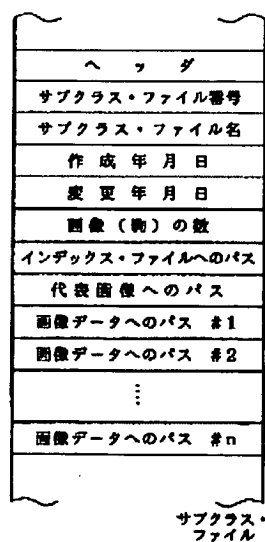 ヘッダ
サブクラス・ファイル番号
サブクラス・ファイル名
作成年月日
変更年月日
画像(駒)の数
インデックス・ファイルへのパス
代表画像へのパス
画像データへのパス #1
画像データへのパス #2
⋮
画像データへのパス #n
サブクラス・
ファイル